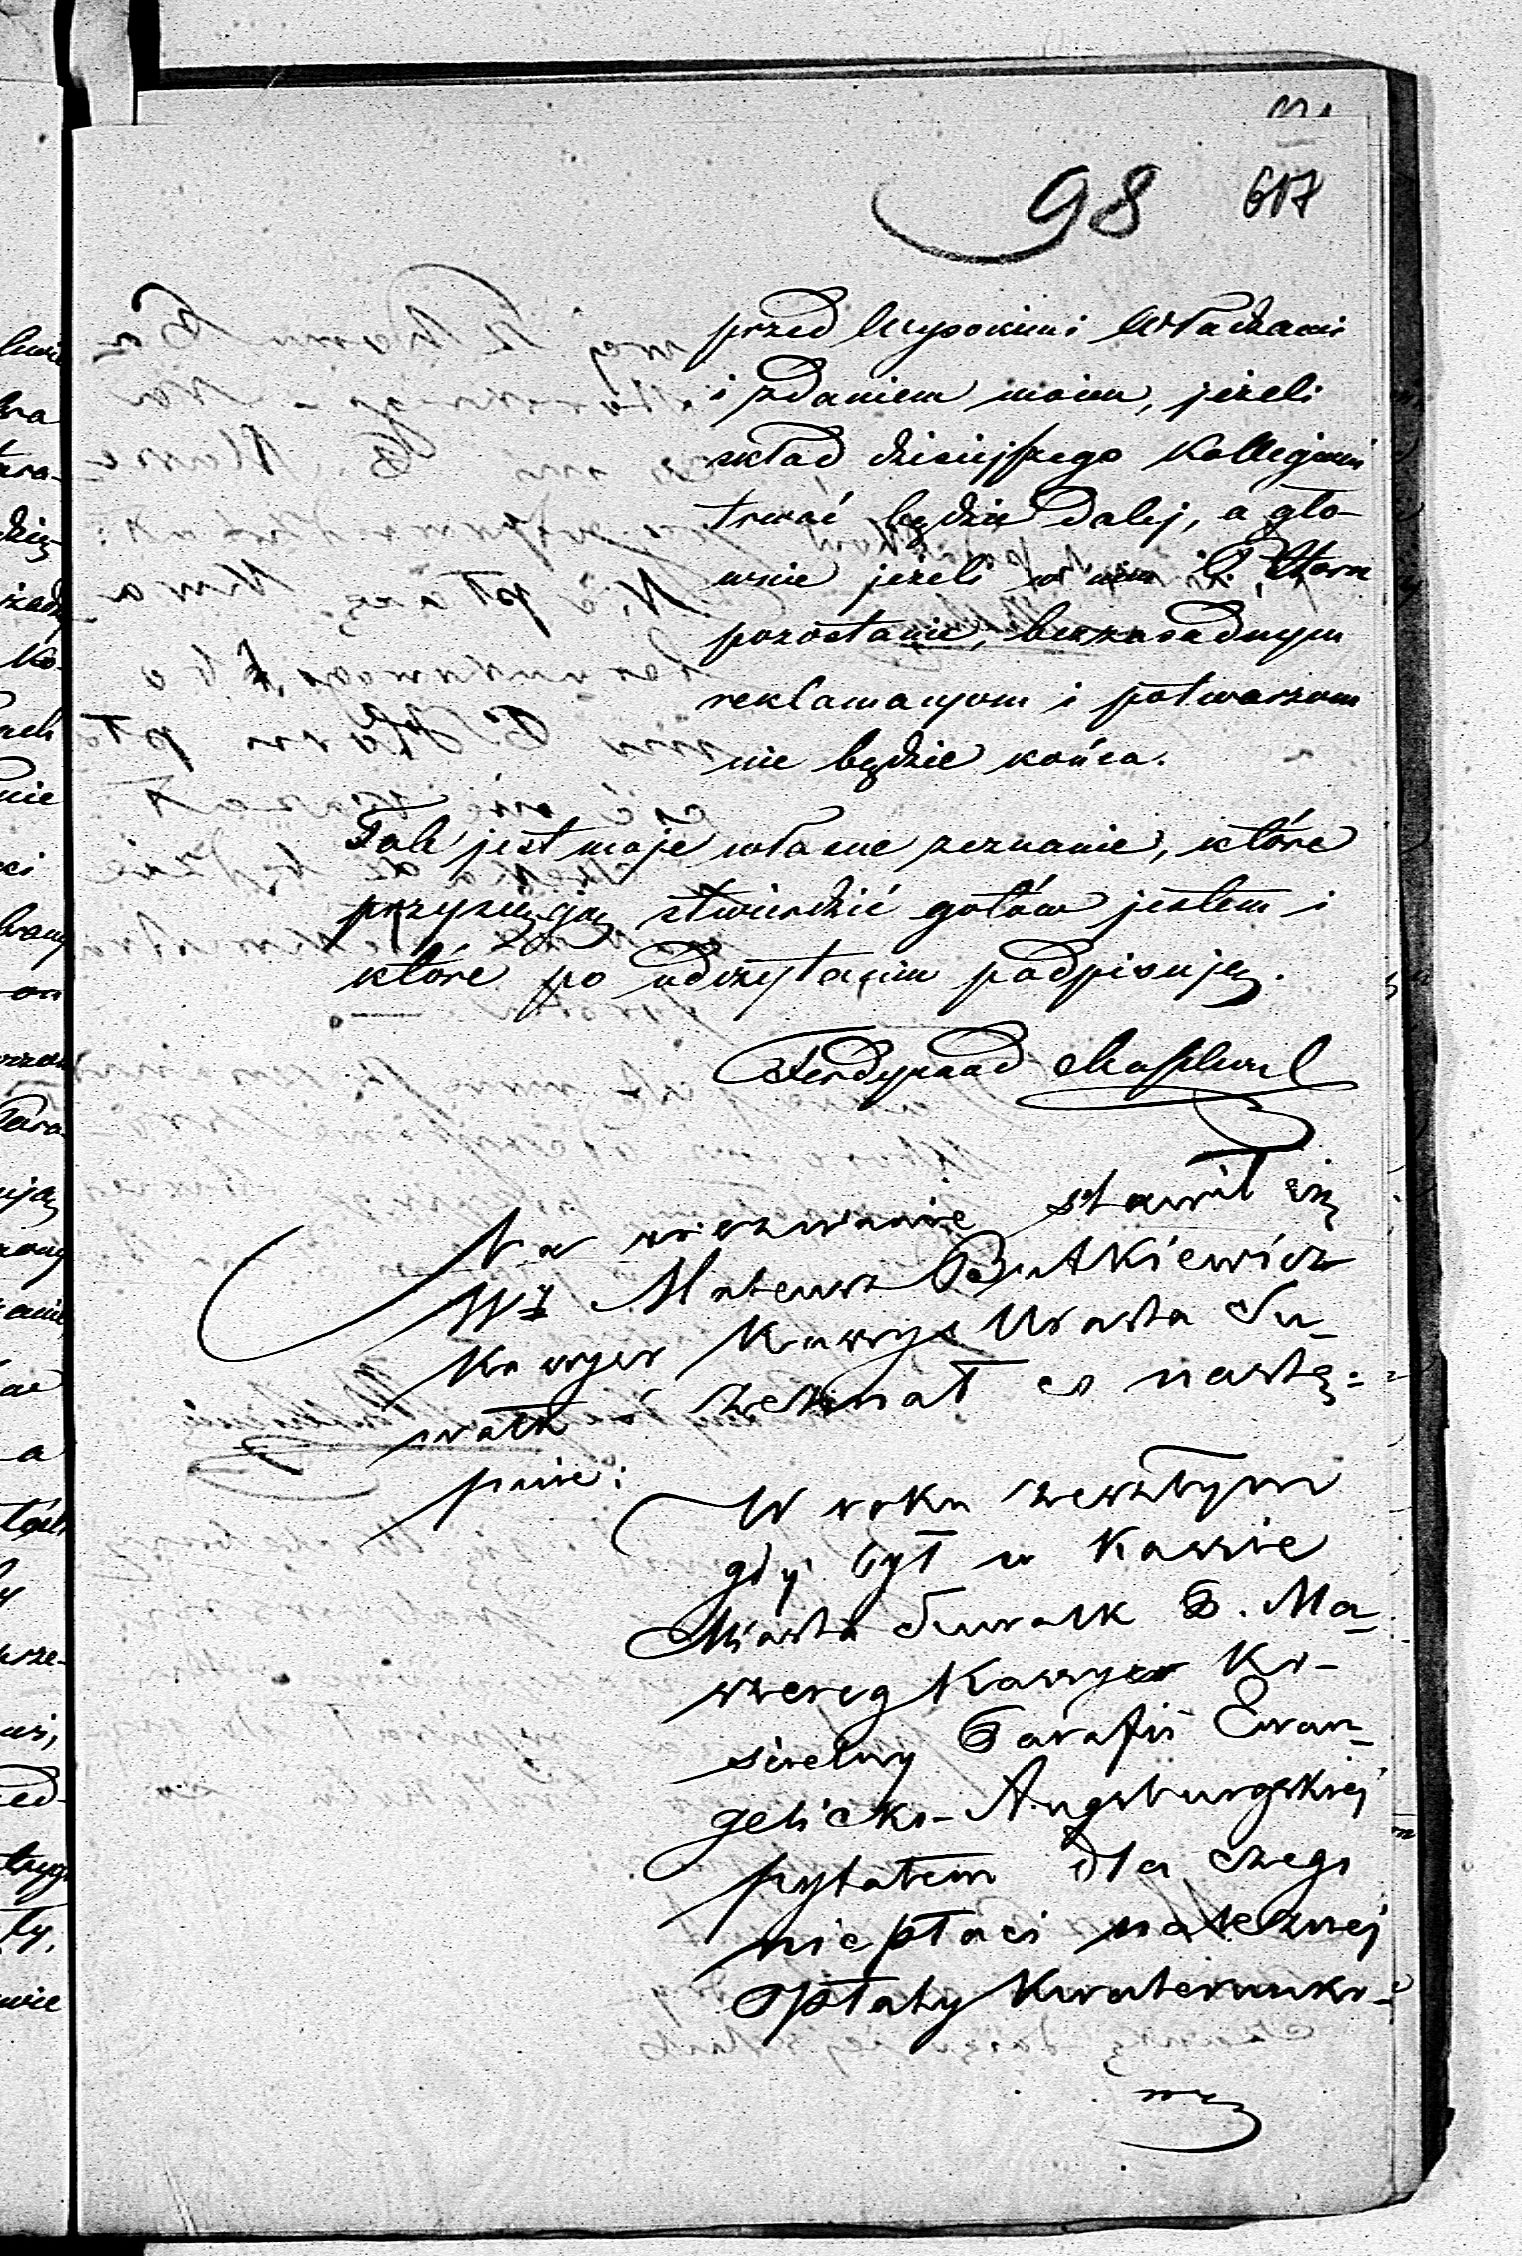 98 617
przed Wysokiemi Władzami
i zdaniem moim, jeżeli
skład dzisiejszego Kollegium
trwać będzie dalej, a głó-
wnie jeżeli w nim P. Horn
pozostanie, bezzasadnym
reklamacyom i potwarzom
nie będzie końca.
Tak jest moje własne zeznanie, które
przysięgą stwierdzić gotów jestem i
które po odczytaniu podpisuję.
Ferdynand
Na wezwanie stawił się
WJ Mateusz Butkiewicz
Kassyer Kassy Miasta Su-
wałk i zeznał co nastę-
pnie:
W roku zeszłym
gdy był w Kassie
Miasta Suwałk P. Ma-
Kassyer Ko-
ścielny Parafii Ewan-
gelicko-Augsburgskiej
pytałem dla czego
nie płaci należnej
opłaty Kwaterunko-